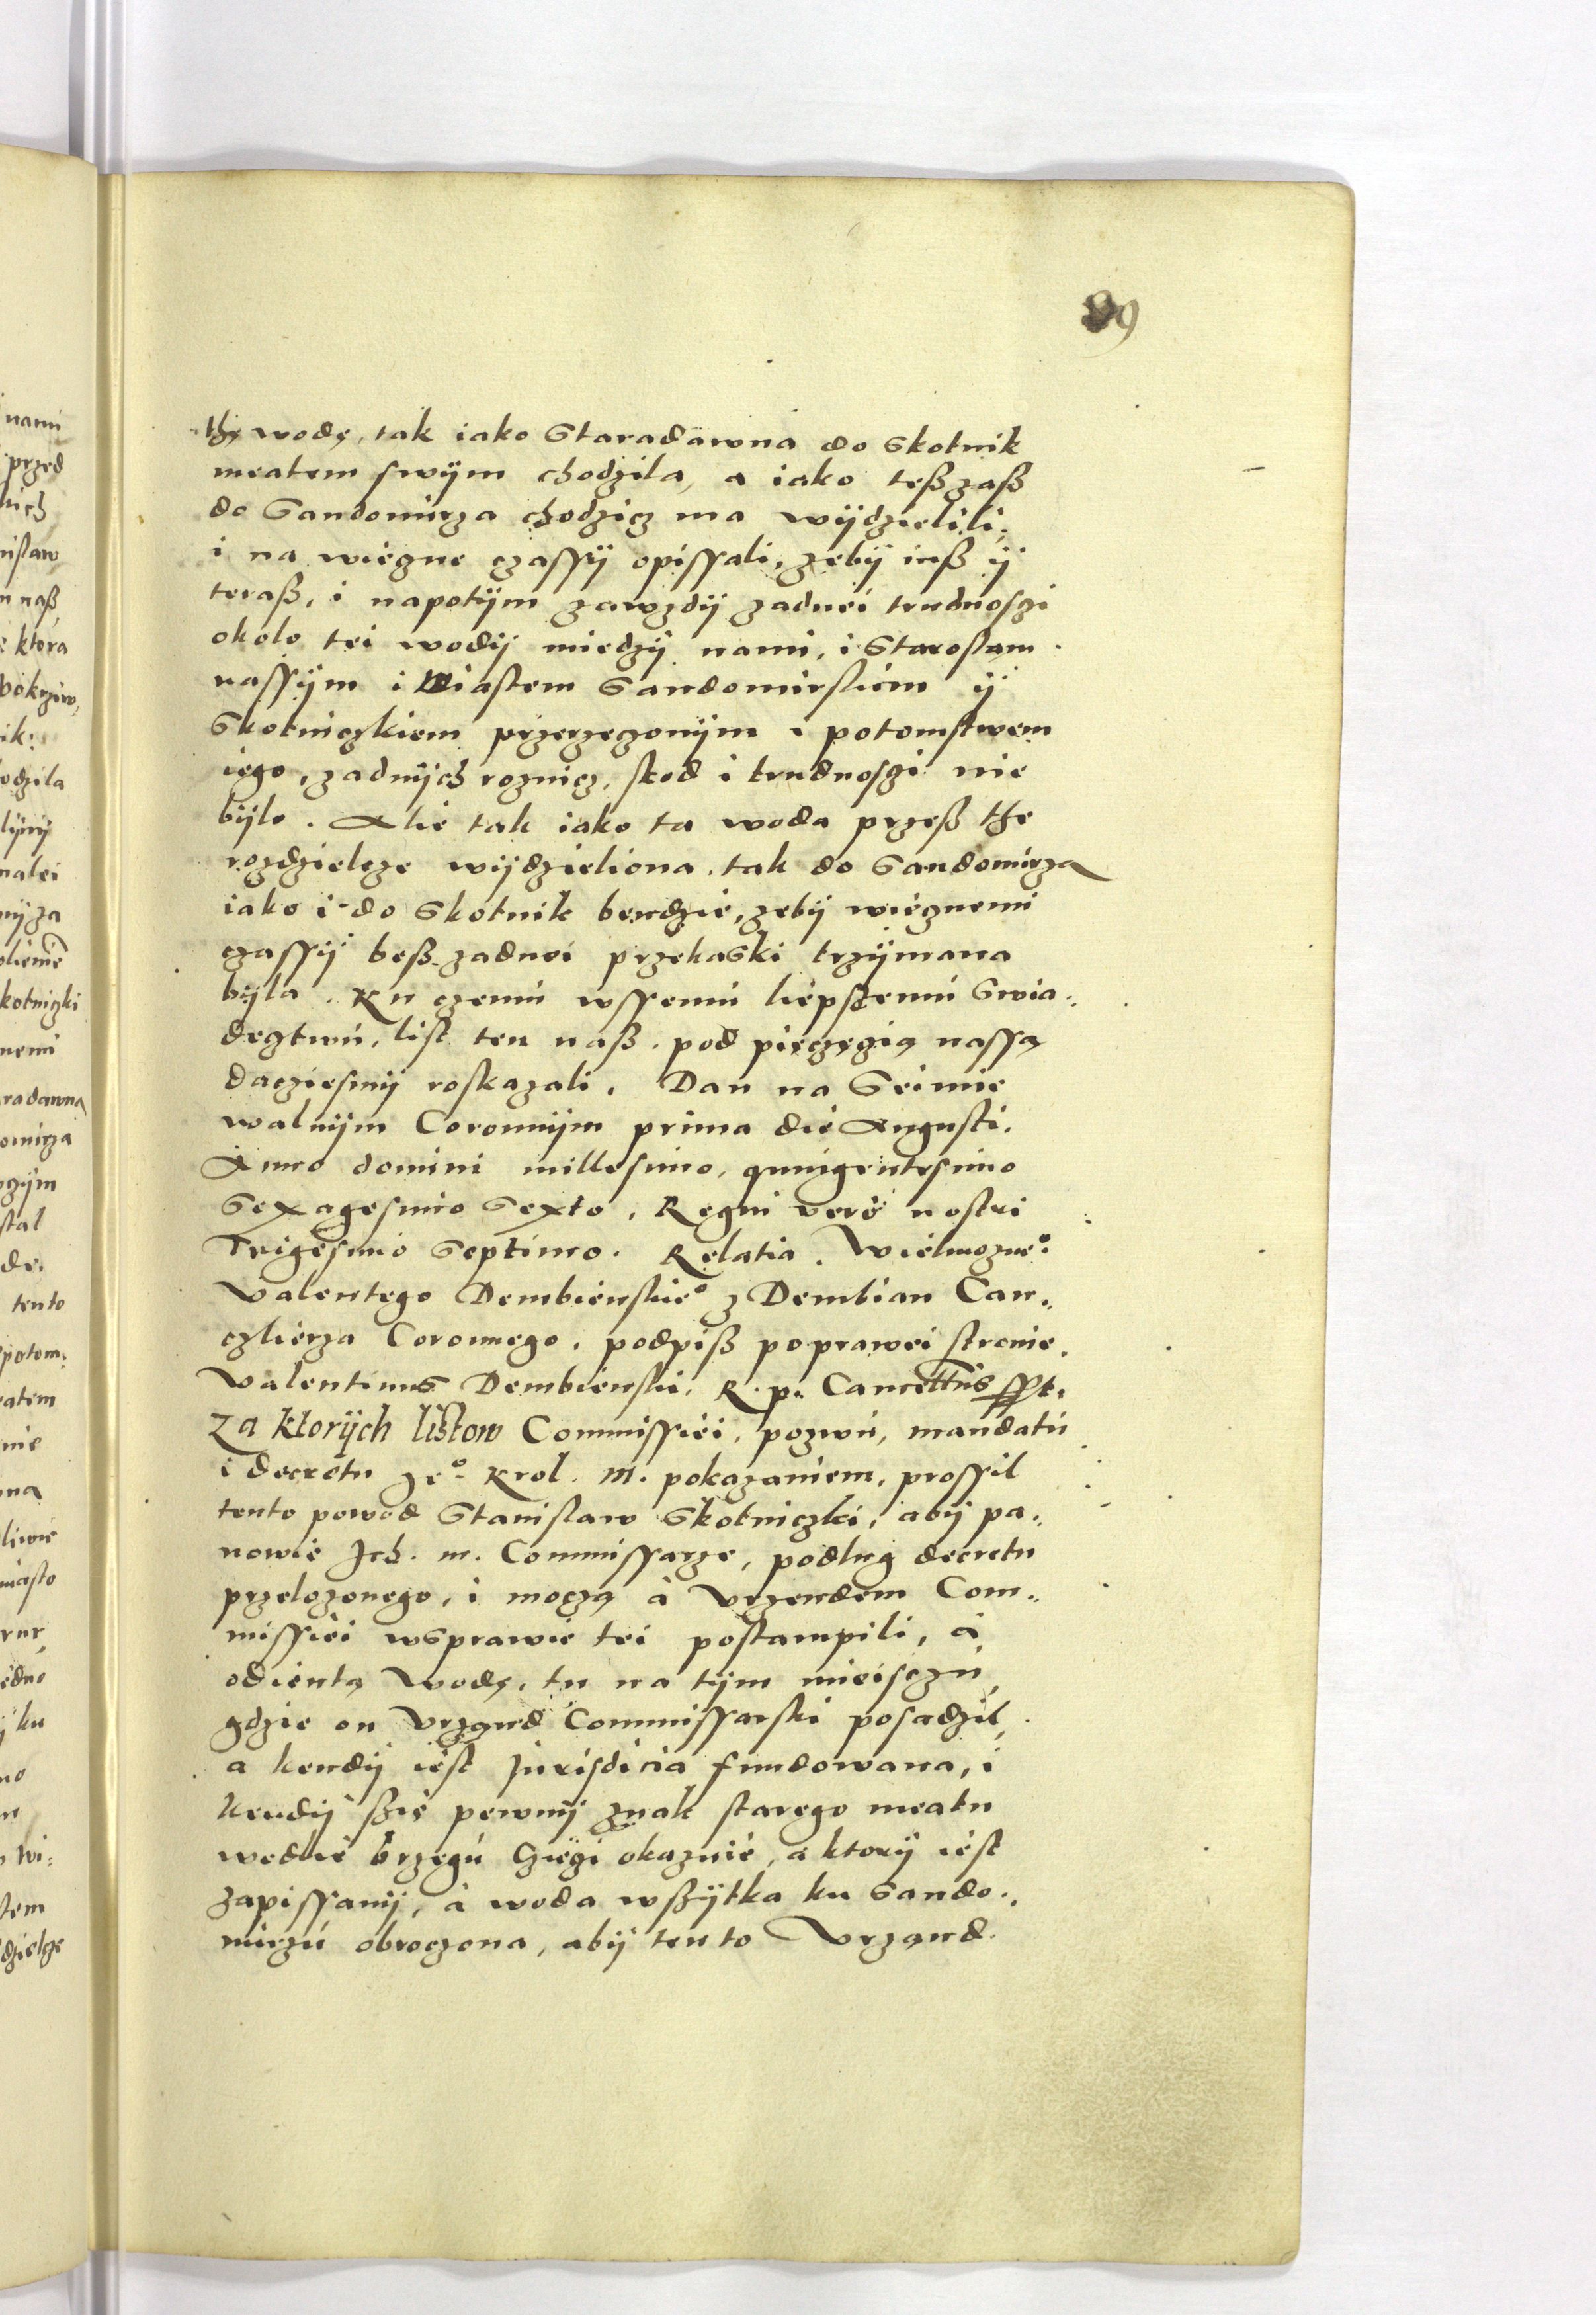 89
thę wodę, tak iako Staradawna do Skotnik
meatem swÿm chodzila, a iako teß zaß
do Sandomirza chodzicz ma wÿdzielili,
i na wiegne czassÿ opissali, zebÿ iuß ÿ
teraß, i napotÿm zawzdÿ zadnei trudnosgi
okolo tei wodÿ miedzÿ nami, i Starostam
nassÿm i Miastem Sandomirskiem ÿ
Skotniczkiem przerzeczonÿm i potomstwem
iego, zadnÿch roznicz, skod i trudnosgi nie
bÿlo. Alie tak iako ta woda przeß the
rozdzielcze wÿdzieliona, tak do Sandomirza
iako i do Skotnik bendzie, zebÿ wiegnemi
czassÿ beß zadnei przekaski trzÿmana
bÿla. Ku czemu wssemu liepszemu Swia„
degtwu, list ten naß, pod pieczęgią nassą
dacziesmÿ roskazali. Dan na Seimie
walnÿm Coronnÿm prima die Augusti.
Anno domini millesimo, quingentesimo
Sexagesimo Sexto, Regni vero nostri
Trigesimo Septimo. Relatia. Wielmozneº
Valentego Dembienskieº z Dembian Can„
czlierza Coronnego, podpiß poprawei stronie.
Valentinus Dembienski, R. p. Cancelłus sst.
Za ktorÿch listow Commissiei, pozwu, mandatu
i decretu geº Krol. M. pokazaniem, prossil
tento powod Stanislaw Skotniczki, abÿ pa„
nowie Jch. m. Commissarze, podlug decretu
przelozonego, i moczą a Vrzendem Com„
missiei wsprawie tei postampili, a
odiętą wodę, tu na tÿm mieisczu,
gdzie on Vrząnd Commissarski posadzil,
a kendÿ iest Jurisdicia fundowana, i
kendÿ ßie pewnÿ znak starego meatu
wedlie brzegu okaznie, a ktorÿ iest
zapissanÿ, a woda wßÿtka ku Sando„
mirzu obroczona, abÿ tento Vrząnd